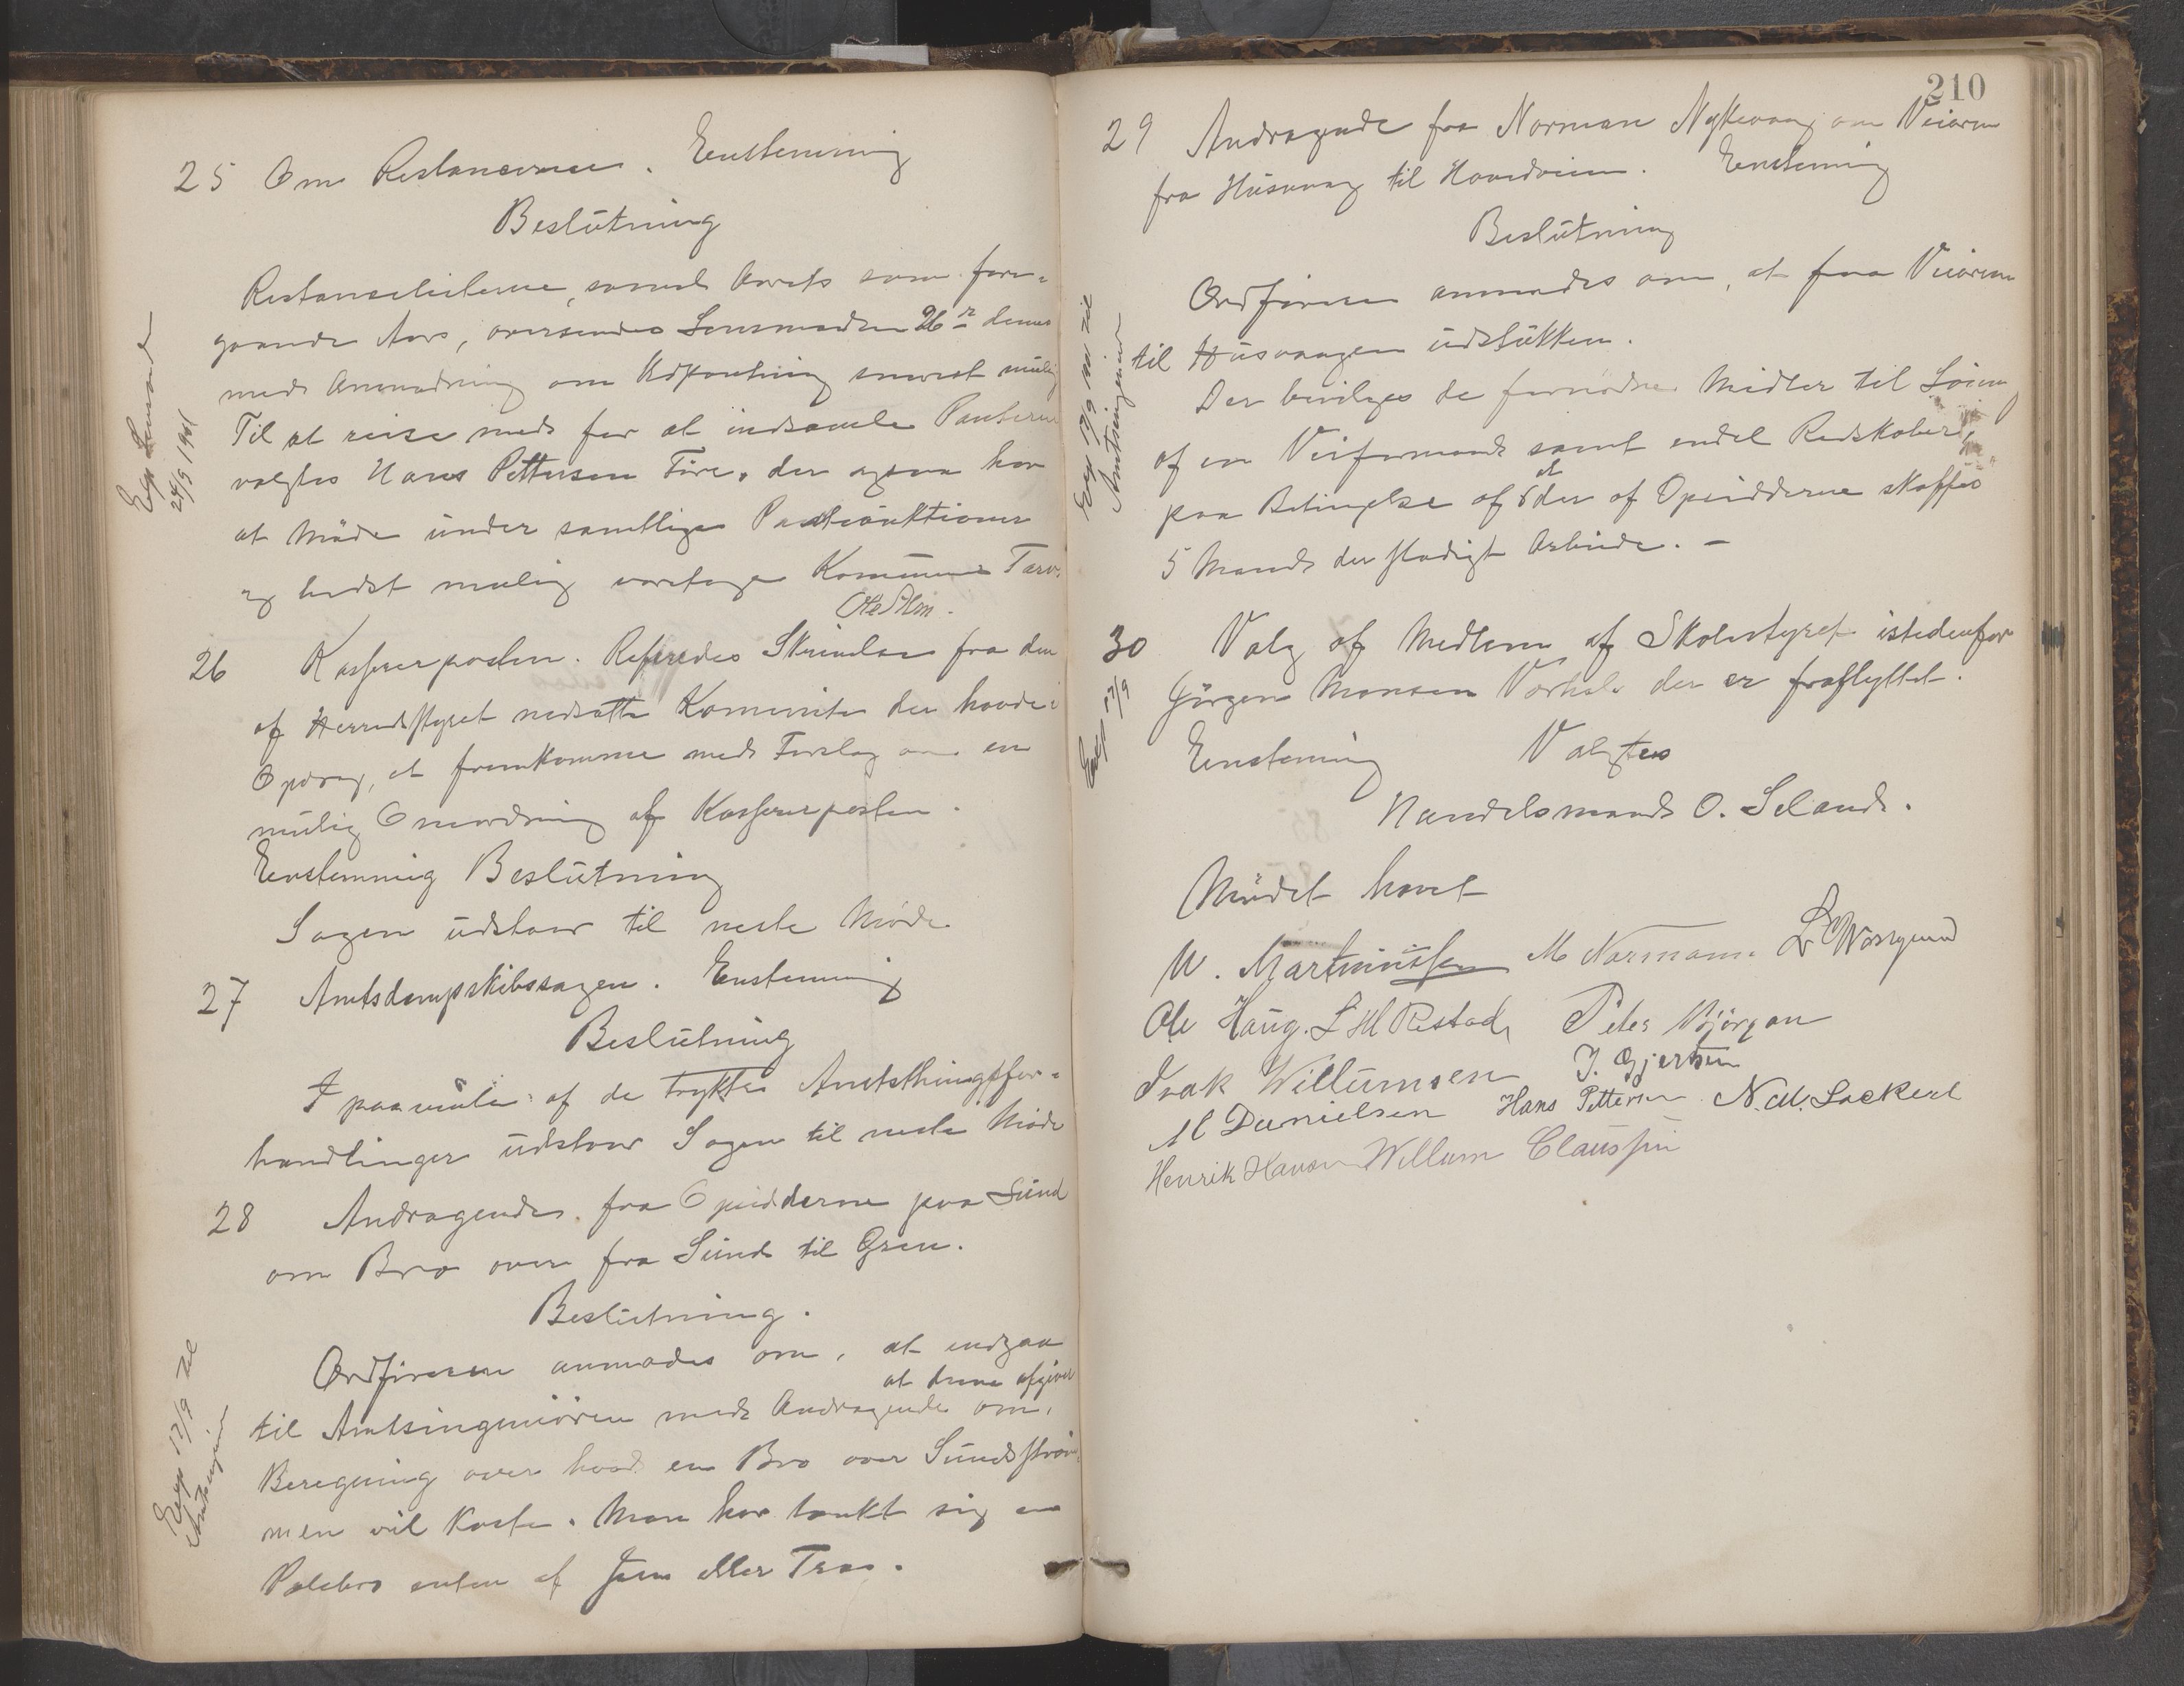 25 Om Restancerne. Eenstemmig
Beslutning
Restancelisterne, samt Aarets som fore=
gaaende Aars, oversendes Lensmanden 26de dennes
med Anmodning om Udpantning snarest mulig
Til at reise med for at indsamle Panterne
valgtes Hans Pettersen Füre. der ogsaa har
at Møde under samtlige Panteauktioner
og bedst mulig varetage Kommunens Tarv.
Exp Lensmand
24/9 1901
26 Kassererposten. Referedes Skrivelse fra den
af Herredstyret nedsatte Kommite der havde i
Opdrag, at fremkomme med Forslag om en
mulig Omordning af Kassererposten.
Eenstemmig Beslutning
Sagen udstaar til neste Møde
27 Amtsdampskibssagen. Eenstemmig
Beslutning
I paavente af de trykte Amtsthingsfor=
handlinger udstaar Sagen til neste Møde
28 Andragende fra Opsidderne paa Sund
om Bro over fra Sund til Øren.
Beslutning.
Ordføreren anmodes om, at indgaa
at denne afgiver
til Amtsingeniøren med Andragende om,
Beregning over hvad en Bro over Sundstrøm
men vil koste. Man har tænkt sig en
Pælebro enten af Jern eller Træ.
Exp 17/9 til
Amtsingeniør
210
29 Andragende fra Norman Nykvaag om Veiarm
fra Husvaag til Hovedveien. Eenstemmig
Beslutning
Ordføreren anmodes om, at faa Veiarmen
til Husvaagen udstukken.
Der bevilges de fornødne Midler til Løn
af en Veiformand samt endel Redskaber
paa Betingelse af at der af Opsidderne skaffes
5 Mand der stadigt Arbeide. -
Exp 17/9 01 til
Amtsingeniør
30 Valg af Medlem af Skolestyret istedenfor
Jørgen Monsen Vorhals der er fraflyttet.
Eenstemmig Valgtes
Handelsmand O. Seland.
Exp 17/9
Mødet hævet
W. Martinussen M Normann.
Ole Haug. L Hl Ristad, Peter Bjørgan
Isak Willumsen J. Gjertsen
M Danielsen Hans Pettersen N. M. Lockert
Henrik Hansen Willum Claussen